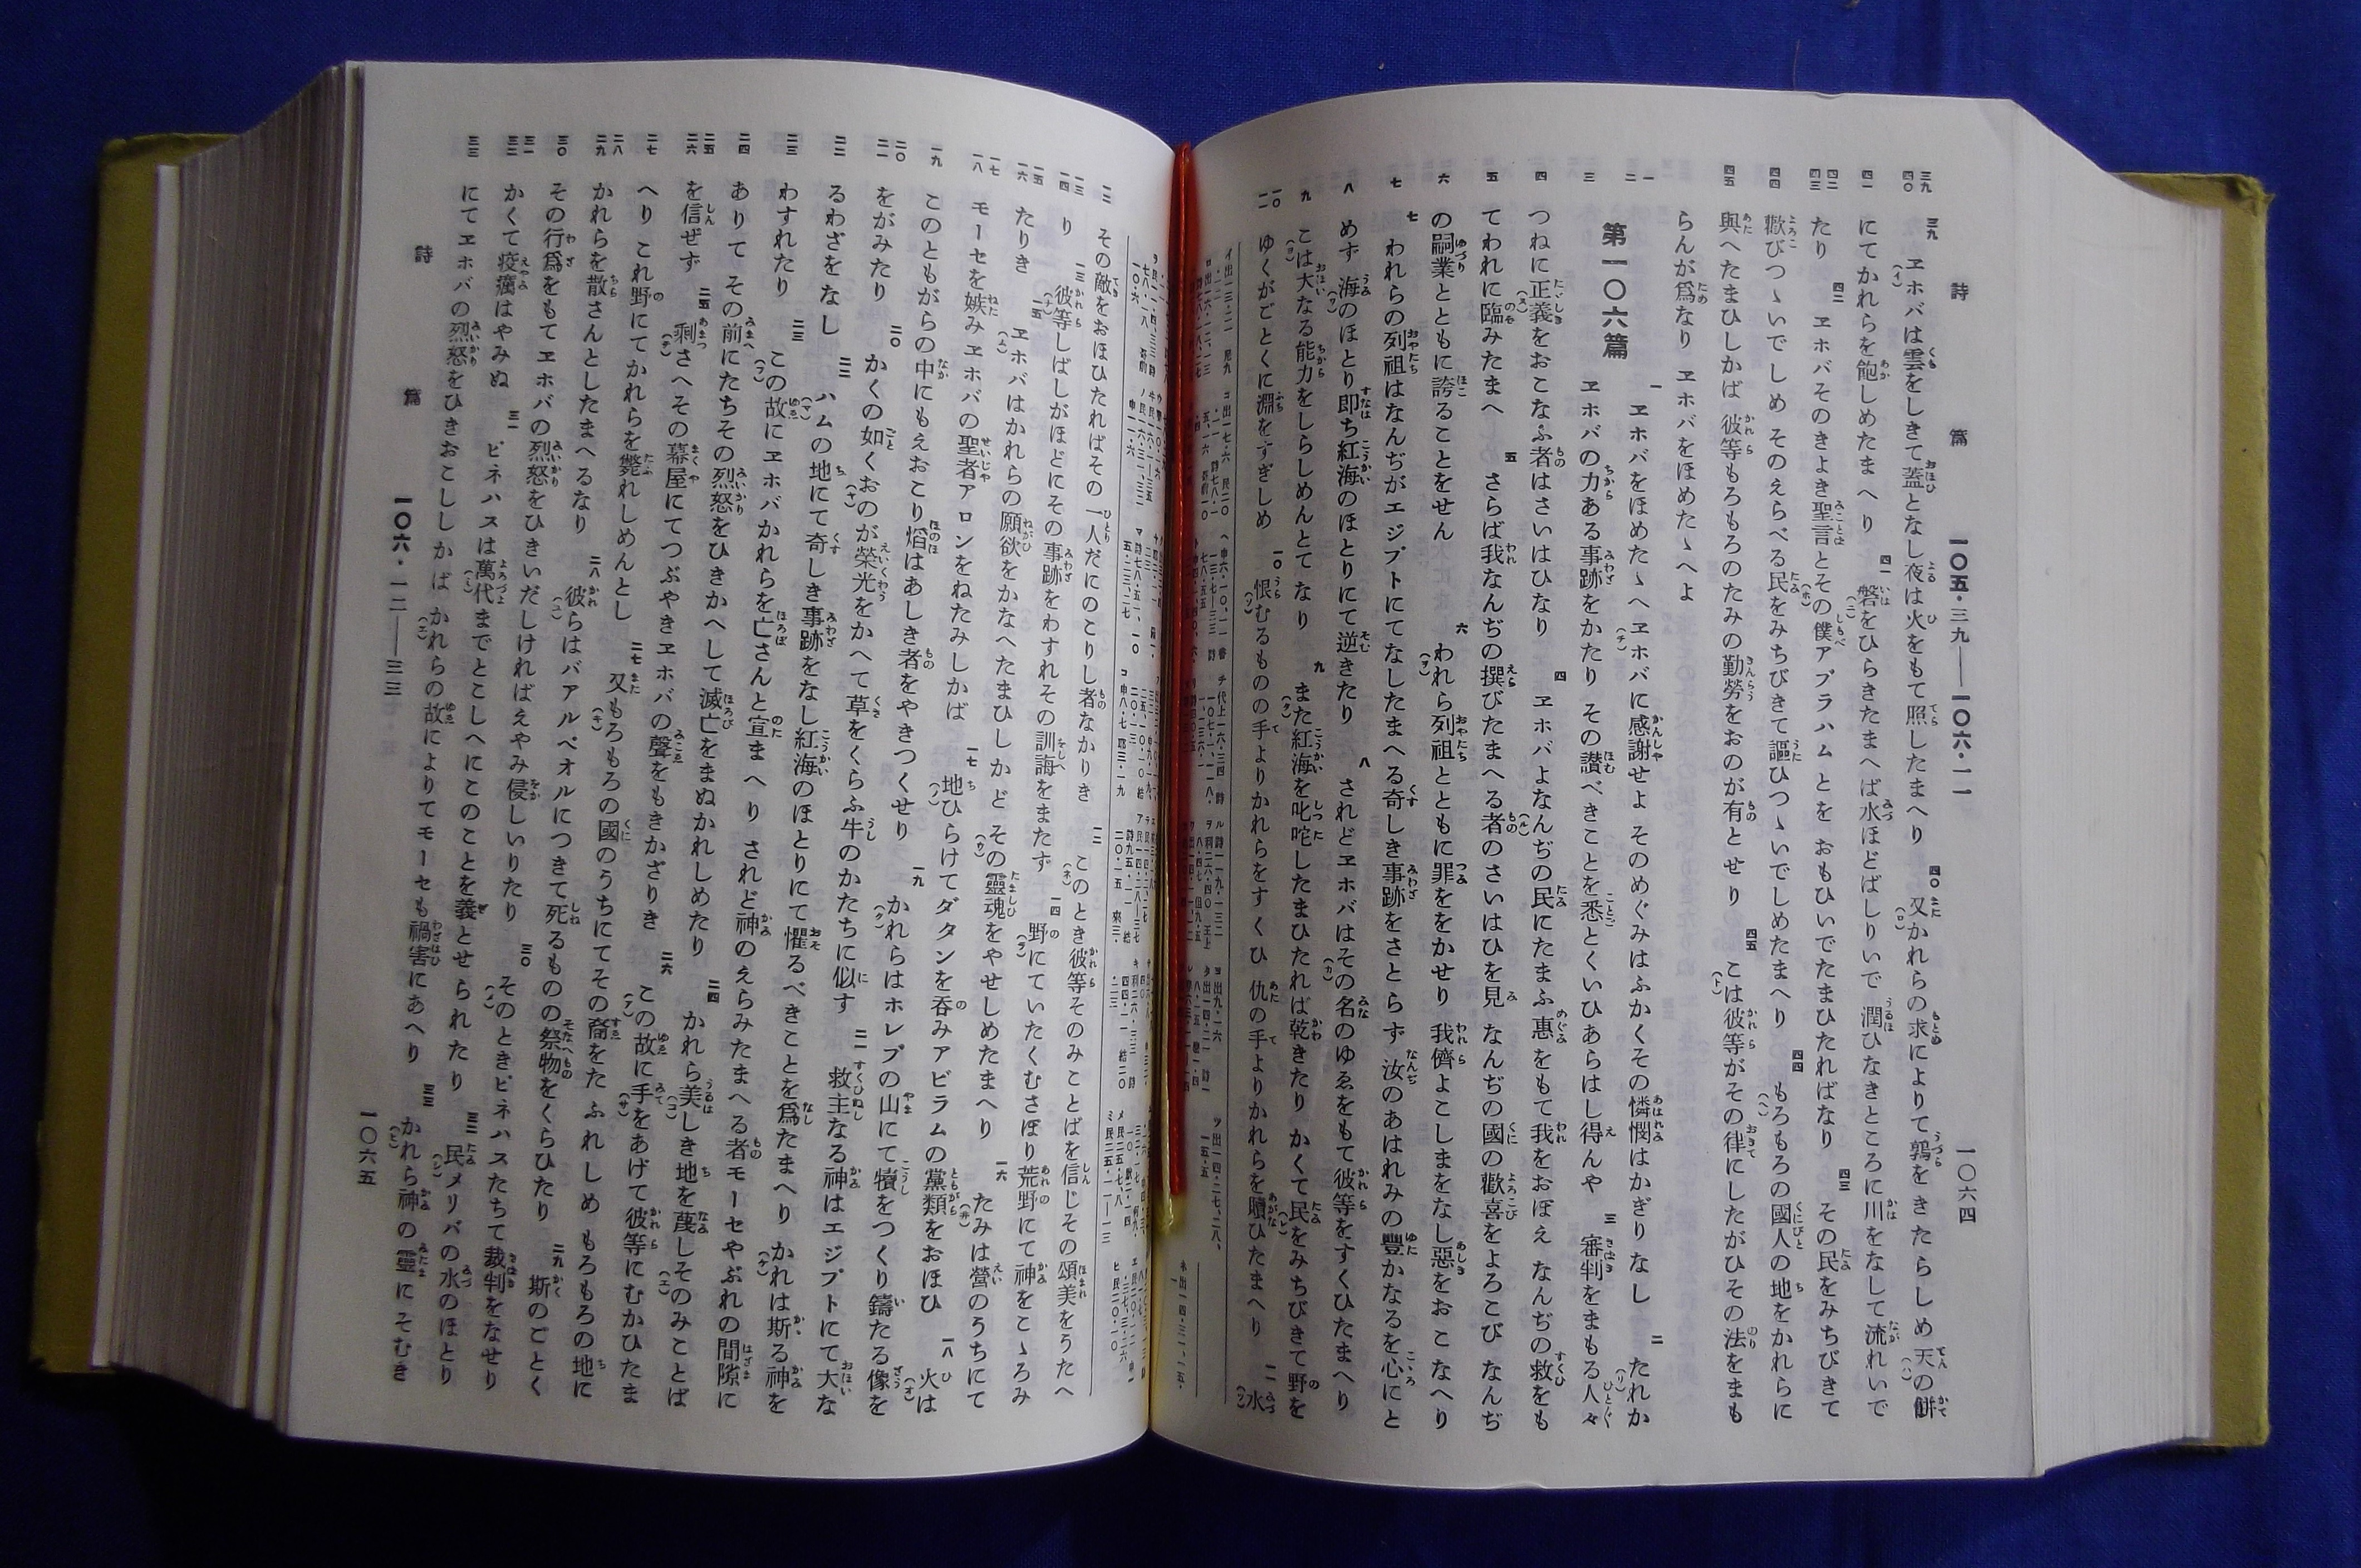 詩 篇 一〇五・三九―一〇六・一一 一〇六四
三九 ヱホバは雲をしきて蓋となし夜は火をもて照したまへり 四〇 又かれらの求によりて鶉をきたらしめ天の餅
にてかれらを飽しめたまへり 四一 磐をひらきたまへば水ほどばしりいで 潤ひなきところに川をなして流れいで
たり 四二 ヱホバそのきよき聖言とその僕アブラハムとを おもひいでたまひたればなり 四三 その民をみちびきて
歡びつゝいでしめ そのえらべる民をみちびきて謳ひつゝいでしめたまへり 四四 もろもろの國人の地をかれらに
與へたまひしかば 彼等もろもろのたみの勤勞をおのが有とせり 四五 こは彼等がその律にしたがひその法をまも
らんが爲なり ヱホバをほめたゝへよ
第一〇六篇
一 ヱホバをほめたゝへヱホバに感謝せよ そのめぐみはふかくその憐憫はかぎりなし 二 たれか
ヱホバの力ある事跡をかたり その讃べきことを悉とくいひあらはし得んや 三 審判をまもる人々
つねに正義をおこなふ者はさいはひなり 四 ヱホバよなんぢの民にたまふ惠をもて我をおぼえ なんぢの救をも
てわれに臨みたまへ 五 さらば我なんぢの撰びたまへる者のさいはひを見 なんぢの國の歡喜をよろこび なんぢ
の嗣業とともに誇ることをせん 六 われら列祖とともに罪ををかせり 我儕よこしまをなし惡をおこなへり
七 われらの列祖はなんぢがエジプトにてなしたまへる奇しき事跡をさとらず 汝のあはれみの豐かなるを心にと
めず 海のほとり即ち紅海のほとりにて逆きたり 八 されどヱホバはその名のゆゑをもて彼等をすくひたまへり
こは大なる能力をしらしめんとてなり 九 また紅海を叱咤したまひたれば乾きたり かくて民をみちびきて野を
ゆくがごとくに淵をすぎしめ 一〇 恨むるものの手よりかれらをすくひ 仇の手よりかれらを贖ひたまへり 一一 水
その敵をおほひたればその一人だにのこりし者なかりき 一二 このとき彼等そのみことばを信じその頌美をうたへ
り 一三 彼等しばしがほどにその事跡をわすれその訓誨をまたず 一四 野にていたくむさぼり荒野にて神をこゝろみ
たりき 一五 ヱホバはかれらの願欲をかなへたまひしかど その靈魂をやせしめたまへり 一六 たみは營のうちにて
モーセを嫉みヱホバの聖者アロンをねたみしかば 一七 地ひらけてダタンを呑みアビラムの黨類をおほひ 一八 火は
このともがらの中にもえおこり熖はあしき者をやきつくせり 一九 かれらはホレブの山にて犢をつくり鑄たる像を
をがみたり 二〇 かくの如くおのが榮光をかへて草をくらふ牛のかたちに似す 二一 救主なる神はエジプトにて大な
るわざをなし 二二 ハムの地にて奇しき事跡をなし紅海のほとりにて懼るべきことを爲たまへり かれは斯る神を
わすれたり 二三 この故にヱホバかれらを亡さんと宣まへり されど神のえらみたまへる者モーセやぶれの間隙に
ありて その前にたちその烈怒をひきかへして滅亡をまぬかれしめたり 二四 かれら美しき地を蔑しそのみことば
を信ぜず 二五 剩さへその幕屋にてつぶやきヱホバの聲をもきかざりき 二六 この故に手をあげて彼等にむかひたま
へり これ野にてかれらを斃れしめんとし 二七 又もろもろの國のうちにてその裔をたふれしめ もろもろの地に
かれらを散さんとしたまへるなり 二八 彼らはバアルペオルにつきて死るものの祭物をくらひたり 二九 斯のごとく
その行爲をもてヱホバの烈怒をひきいだしければえやみ侵しいりたり 三〇 そのときピネハスたちて裁判をなせり
かくて疫癘はやみぬ 三一 ピネハスは萬代までとこしへにこのことを義とせられたり 三二 民メリバの水のほとり
にてヱホバの烈怒をひきおこししかば かれらの故によりてモーセも禍害にあへり 三三 かれら神の靈にそむき
詩 篇 一〇六・一二―三三 一〇六五